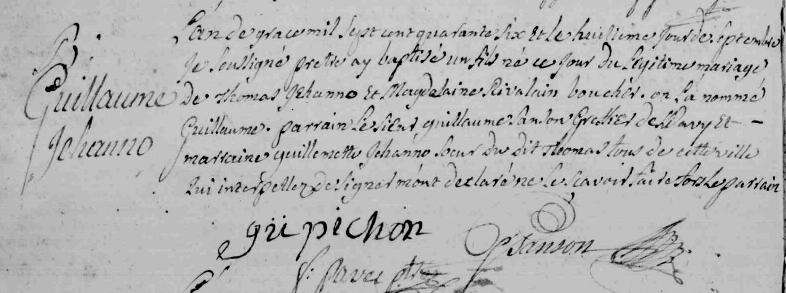 Guillaume
Jehanno
L'an de grace mil sept cent quarante six et le huitième jour de septembre
Je soussigné pretre ay baptisé un fils né ce jour du legitime mariage
de Thomas Jehanno et Magdelaine Rivalain bouchés. on l'a nommé
Guillaume. parrain le sieur guillaume Sanson Greffier et
marraine guillemette Jehanno soeur du dit Thomas tous de cette ville
qui interpellez de signer m'ont declaré ne le scavoir faire fors le parrain
gui pichon
Sanson